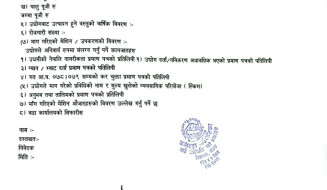 ख) चालु पूँजी रु
जम्मा पूँजी रु
५) उद्योगबाट उत्पादन हुने वस्तुको वार्षिक विवरण :-
६) रोजगारी संख्या :-
(७) माग गरिएको मेशिन / उपकरणको विवरण :-
उद्योगले अनिवार्य रुपमा संलग्न गर्नु पर्ने कागजातहरु
१) उद्यमीको नेपाली नागरीकता प्रमाण पत्रको प्रतिलिपी २) उद्योग दर्ता/नविकरण अद्यावधिक भएको प्रमाण पत्रको प्रतिलिपी
३) प्यान / भ्याट दर्ता प्रमाण पत्रको प्रतिलिपी
४) गत आ.व. ०७८।०७९ सम्मको कर चुक्ता प्रमाण पत्रको प्रतिलिपी
(५) उद्योगले माग गरेको प्रविधिको नाम र मुल्य खुलेको व्यवसायिक परियोजना ( स्किम)
६) अनुभव तथा तालिमको प्रमाण पत्रको प्रतिलिपी
७) माँग गरिएको मेशिन औजारहरुको विवरण उल्लेख गर्नु पर्ने छ
८) वडा कार्यालयको सिफारीस
नाम :-
दस्तखत:-
निवेदक
मिति :-